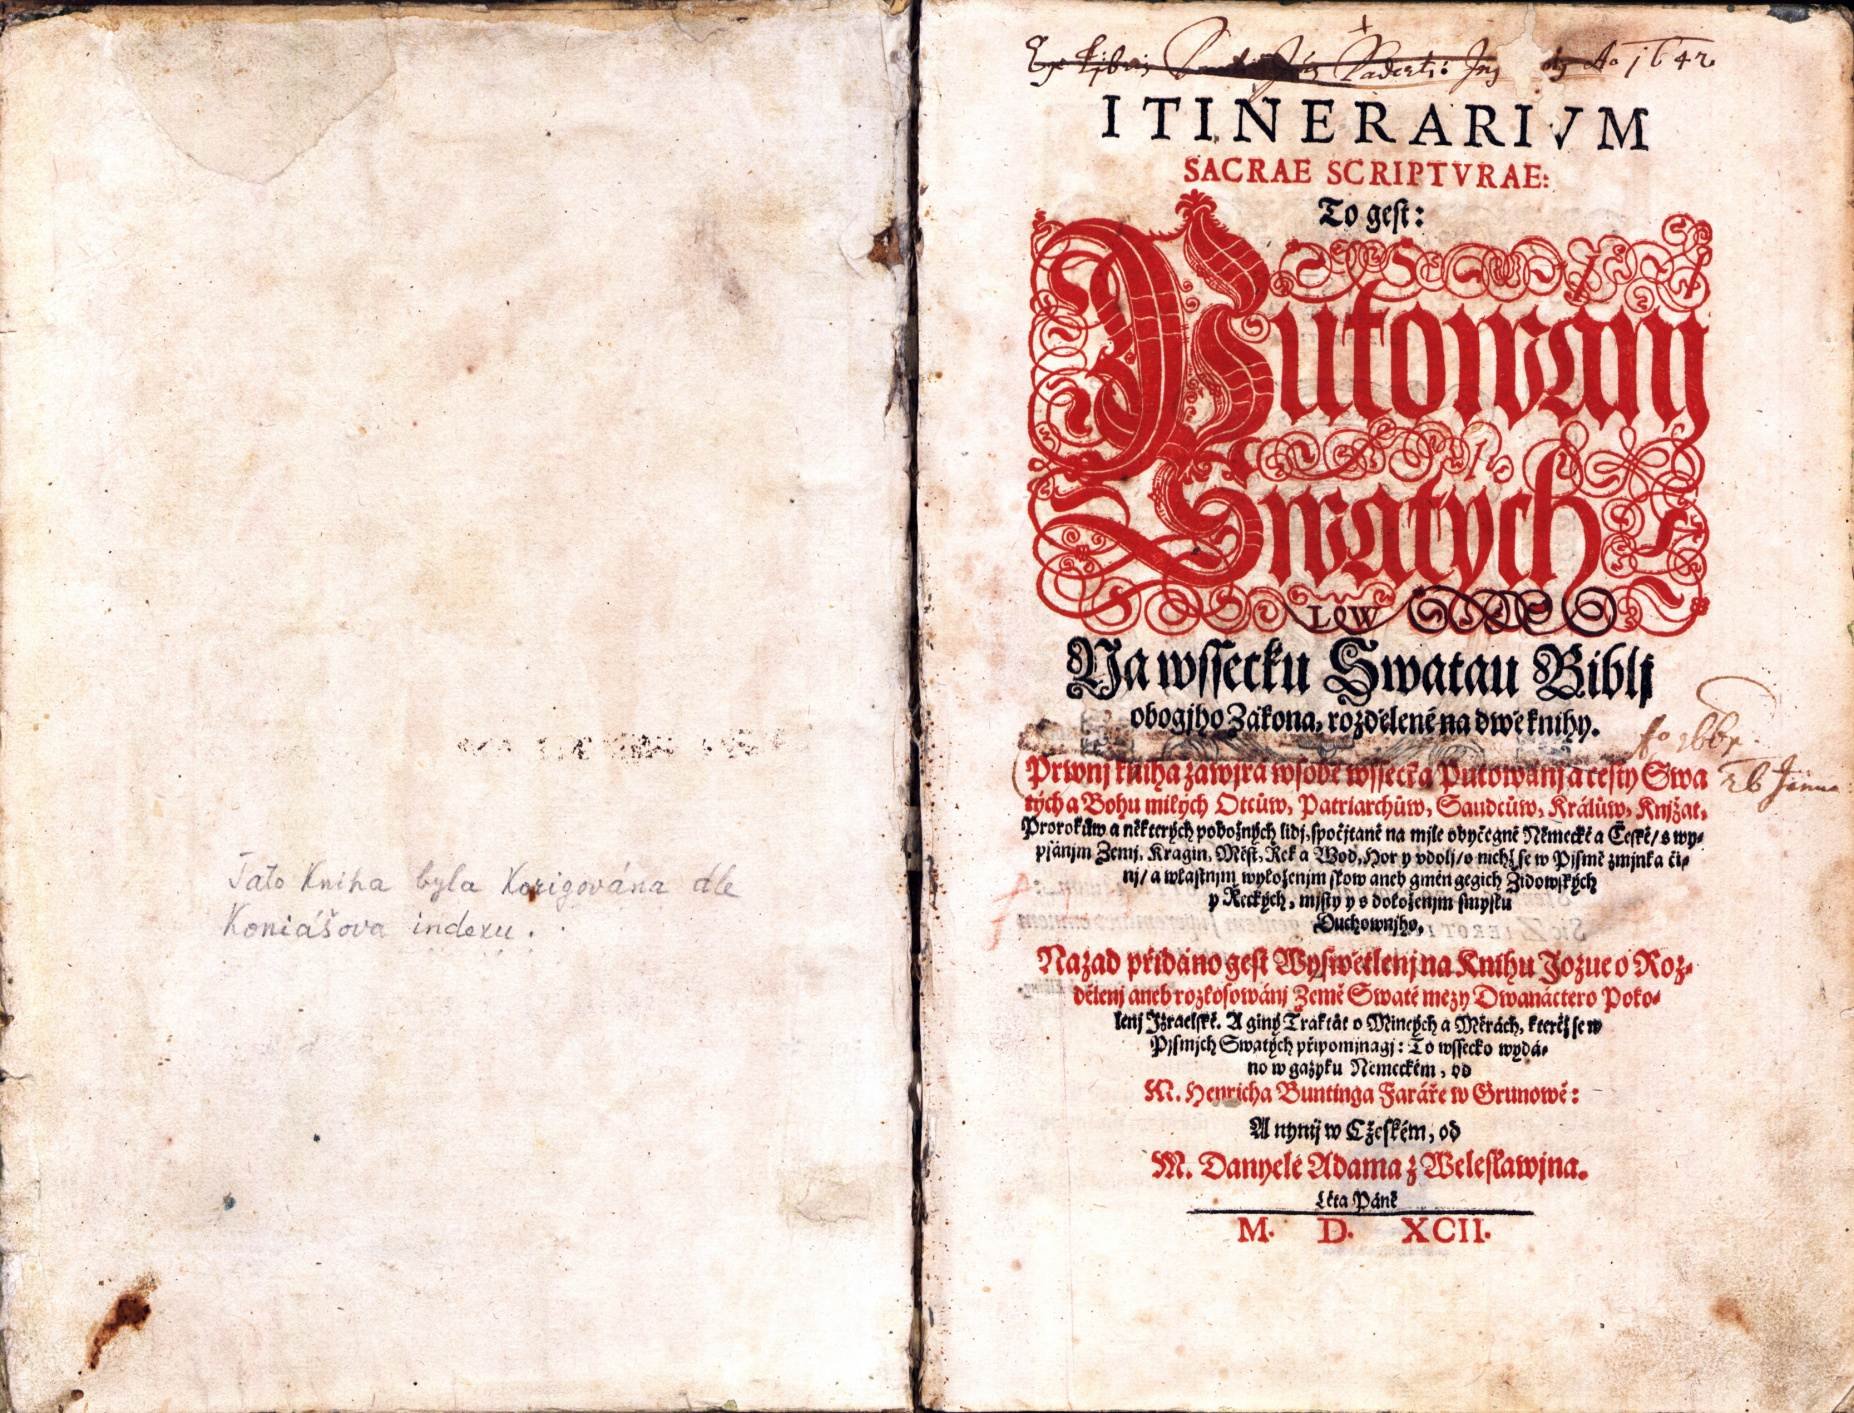 Tato Kniha byla Korigována dle
Koniášova indexu.
Ex Libris
Ao 1642
ITINERARIVM
SACRAE SCRIPTVRAE:
To gest:
Putowanj
Swatých
Na wssecku Swatau Biblj
obogjho Zákona, rozdělené na dwě knihy.
Prwnj kniha zawjrá w sobě wssecka Putowánj a cesty Swa
tých a Bohu milých Otcůw, Patriarchůw, Saudcůw, Králůw, Knjžat,
Prorokůw a některých pobožných lidj, spočjtané na mjle obyčegné Německé a České/ s wy-
psánjm Zemj, Kragin, Měst, Řek a Wod, Hor y vdolj/ o nichž se w Pjsmě zmjnka či-
nj/ a wlastnjm wyloženjm slow aneb gmén gegich Židowských
y Řeckých, mjsty y s doloženjm smyslu
Duchownjho.
Nazad přidáno gest Wyswětlenj na Knihu Jozue o Roz-
dělenj aneb rozlosowánj Země Swaté mezy Dwanáctero Poko-
lenj Jzraelské. A giný Traktát o Mincých a Měrách, kteréž se w
Pjsmjch Swatých připomjnagj: To wssecko wydá-
no w gazyku Nemeckém, od
M. Henricha Buntinga Faráře w Grunowě:
A nynj w Cžeském, od
M. Danyele Adama z Weleslawjna.
Léta Páně
M. D. XCII.